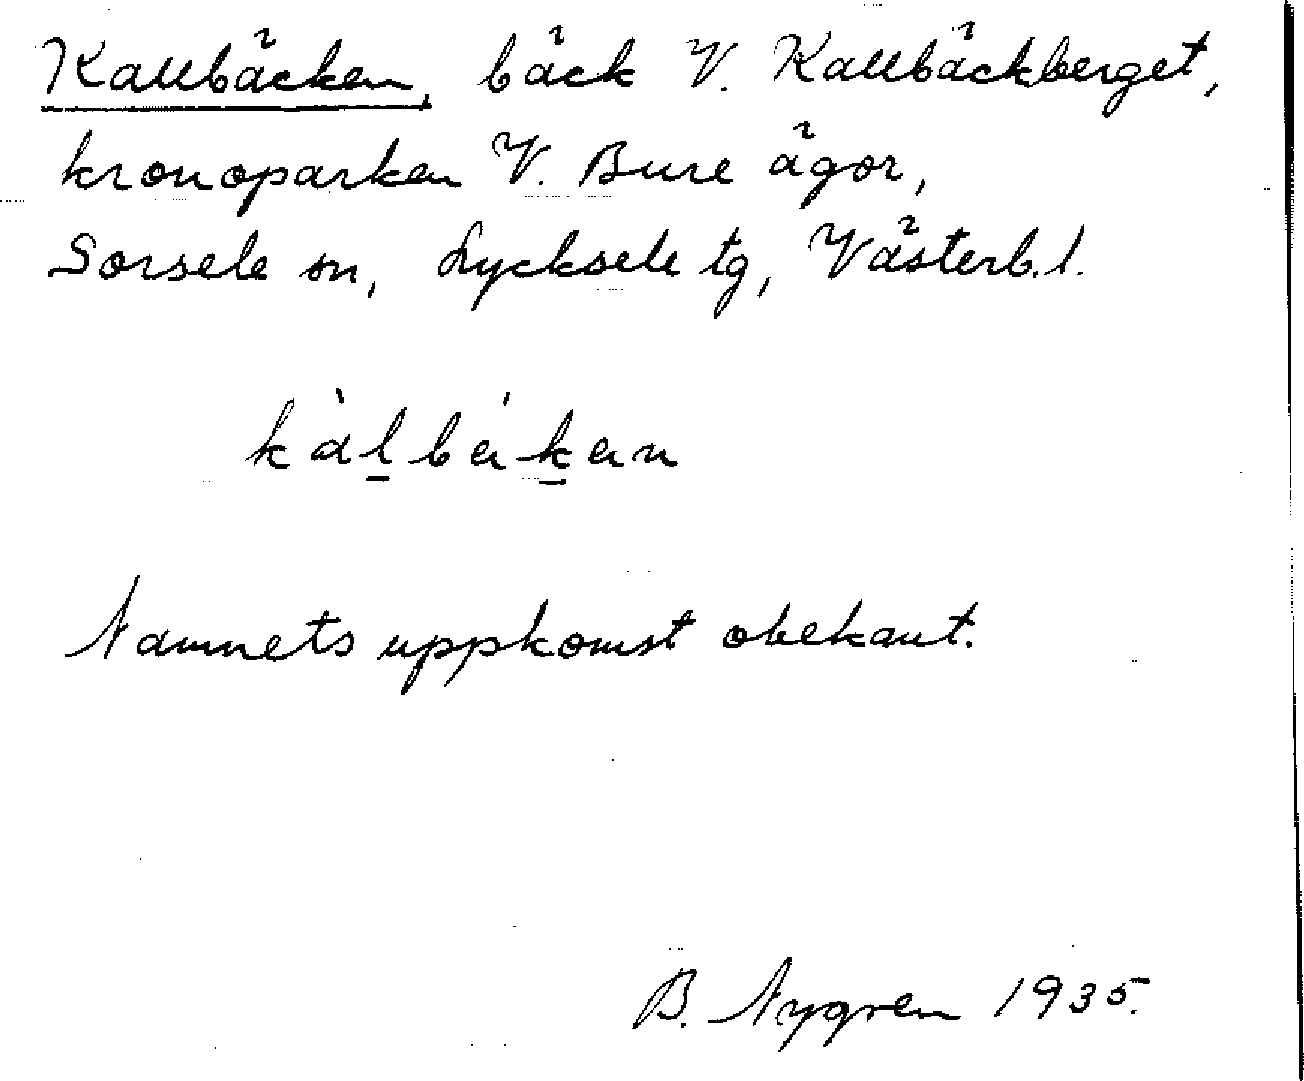 Kallbäcken, bäck V. Kallbäckberget,
kronoparken V. Bure ägor,
Sorsele sn, Lycksele tg, Västerb.l.
kàl̲bák̲en
Namnets uppkomst obekant.
B. Nygren 1935.